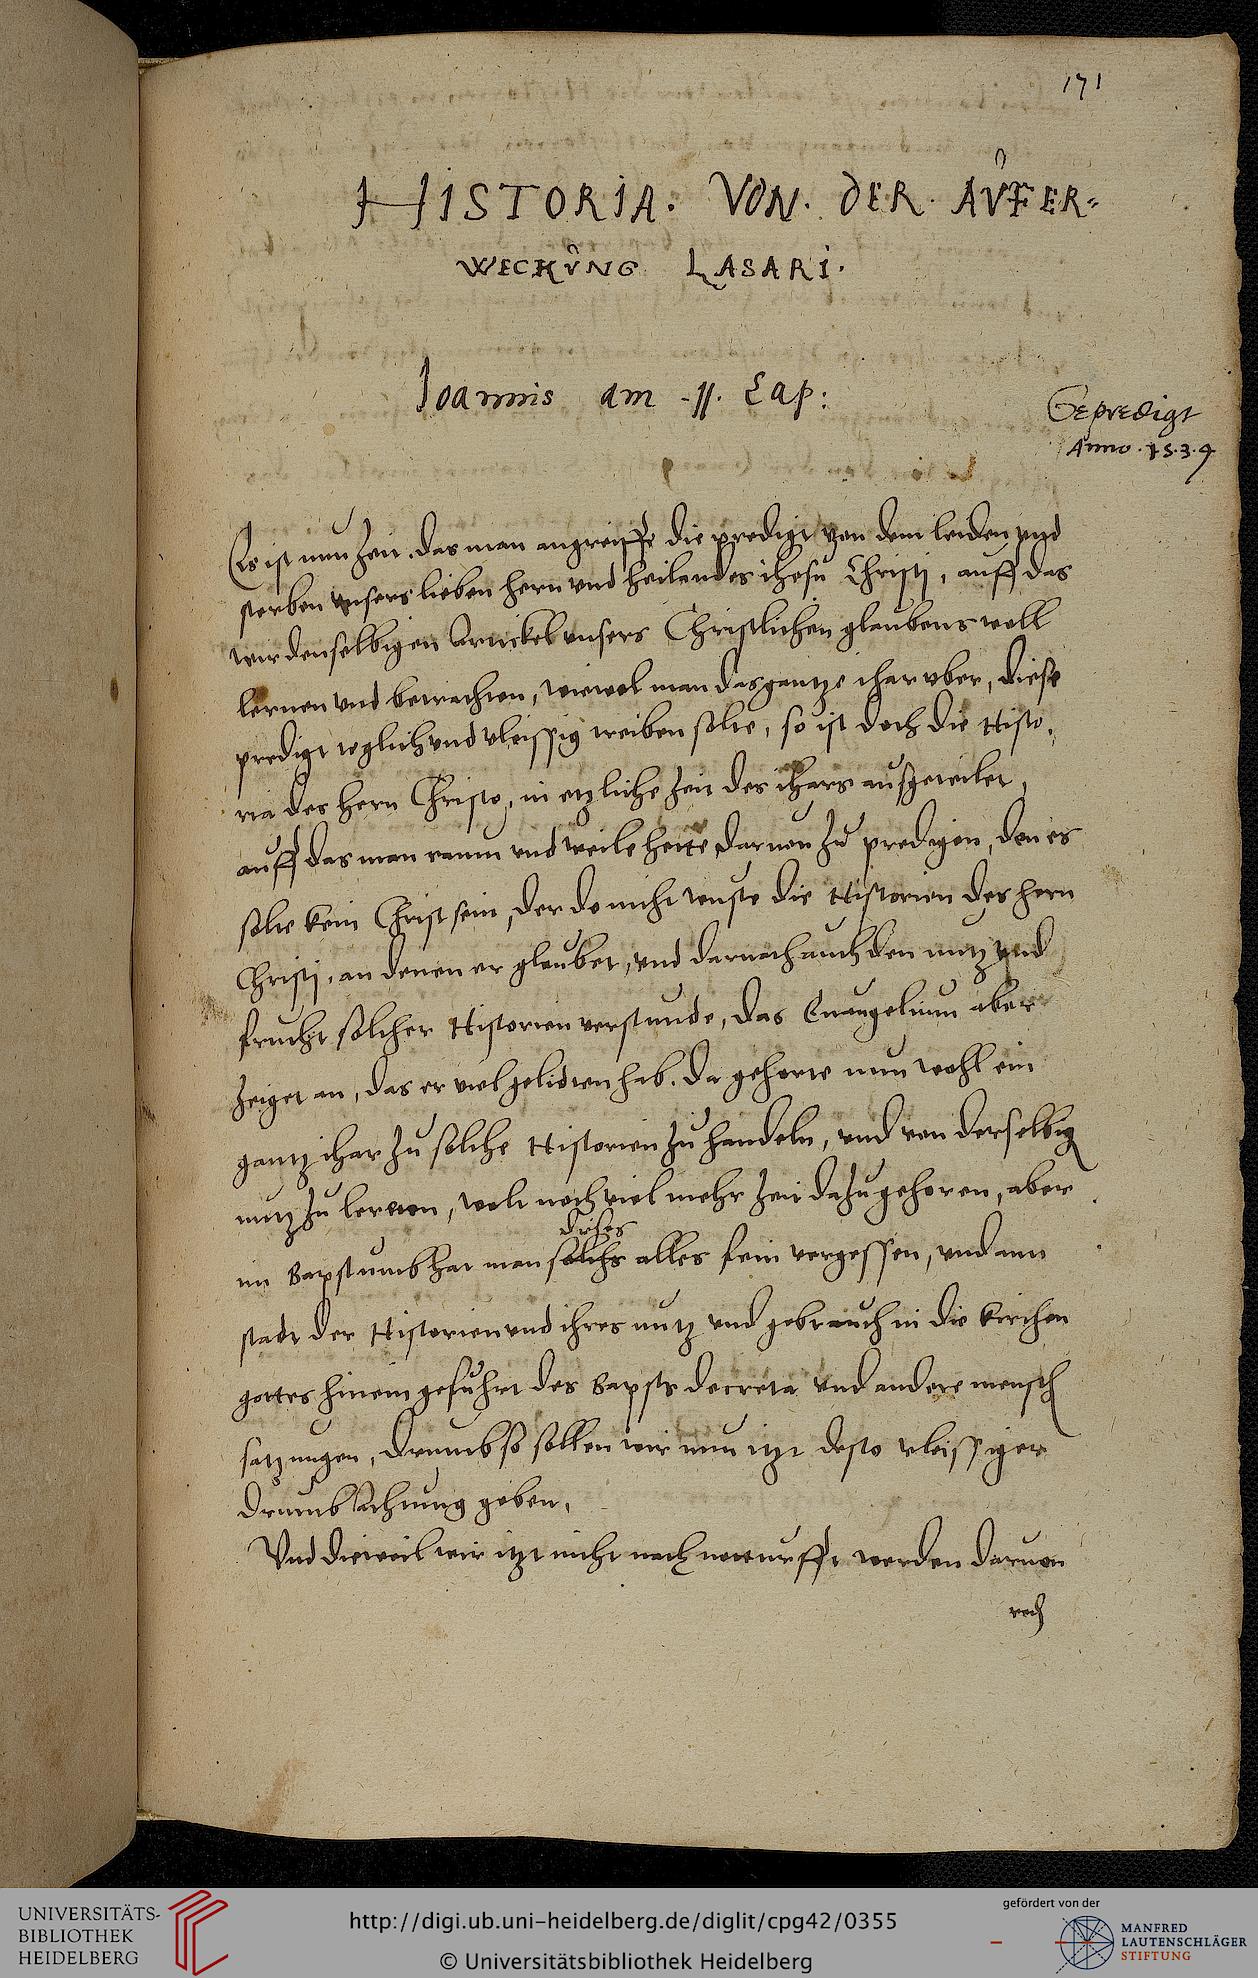 171
HISTORIA. VON. DER. AŮFER-
WECKŮNG LASARI.
Joannis am 11. Cap:
Gepredigt
Anno. 1539
Es ist nun Zeit. das man angreiffe die predigt von dem leiden vnd
sterben vnsers lieben hern vnd heilandes ihesu Christj, auff das
wir denselbigen Artickel vnsers Christlichen glaubens woll
lernen vnd betrachten, wiewol man das gantze ihar vber, diese
predigt teglich vnd vleissig treiben solte, so ist doch die Histo,
ria des hern Christo, in etzliche Zeit des ihars ausgeteilet,
auff das man raum vnd weile hette daruon zu predigen, den es
solte kein Christ sein, der do nicht wuste die Historien des hern
Christj, an denen er glaubet, vnd darnach auch den nutz vnd
frucht solcher Historien verstunde, das Euangelium aber
Zeiget an, das er viel gelidten hab. da gehorte nun wohl ein
gantz ihar zu solche Historien zu handeln, vnd von derselbig
nutz zu lernen, wolt noch viel mehr Zeit dazu gehoren, aber
dises
im Bapstumb hat man solchs alles fein vergessen, vnd ann
stadt der Historien vnd ihres nutz vnd gebrauch in die kirchen
gottes hinein gefuhrt des Bapsts decreta vnd andere mensch
satzungen, drumb so sollen wir nun itzt desto vleissiger
drumb Achtung geben,
Vnd dieweil wir itzt nicht nach notturfft werden daruon
red
UNIVERSITÄTS-
BIBLIOTHEK
HEIDELBERG
http://digi.ub.uni-heidelberg.de/diglit/cpg42/0355
© Universitätsbibliothek Heidelberg
gefördert von der
MANFRED
LAUTENSCHLÄGER
STIFTUNG